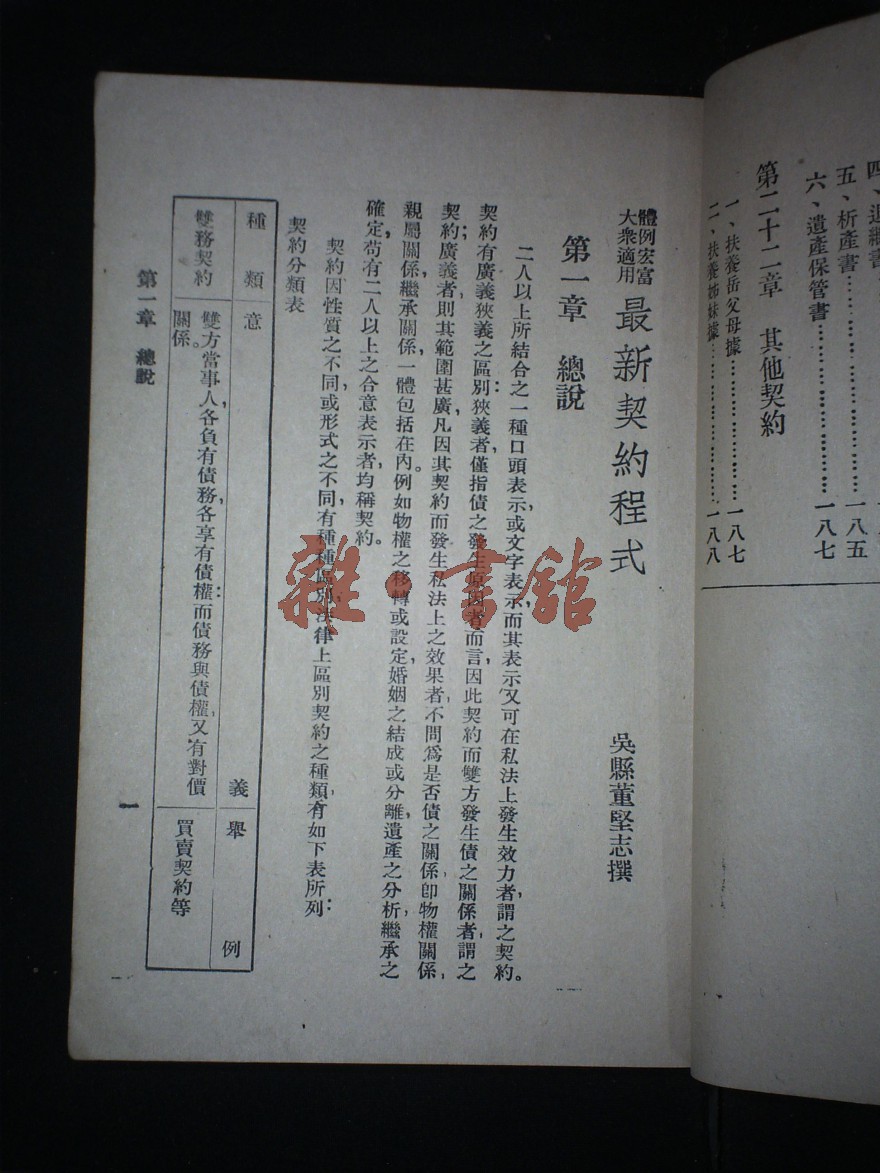 四、退繼書
五、析產書……………………一八五
六、遺產保管書………………一八七
第二十二章　其他契約
一、扶養岳父母據……………一八七
二、扶養姊妹據………………一八八
體例宏富
大衆適用
最新契約程式
吳縣董堅志撰
第一章　總說
二人以上所結合之一種口頭表示,或文字表示,而其表示又可在私法上發生效力者,謂之契約。
契約有廣義狹義之區別,狹義者,僅指債之發生原因者而言,因此契約而雙方發生債之關係者,謂之
契約;廣義者,則其範圍甚廣,凡因其契約而發生私法上之效果者,不問爲是否債之關係,即物權關係,
親屬關係,繼承關係,一體包括在內。例如物權之移轉或設定,婚姻之結成或分離,遺產之分析,繼承之
確定,苟有二人以上之合意表示者,均稱契約。
契約因性質之不同,或形式之不同,有種種區別,法律上區別契約之種類,有如下表所列:
契約分類表
種類
意義
舉例
雙務契約
雙方當事人,各負有債務,各享有債權;而債務與債權,又有對價
關係。
買賣契約等
第一章　總說
一
雜·書館